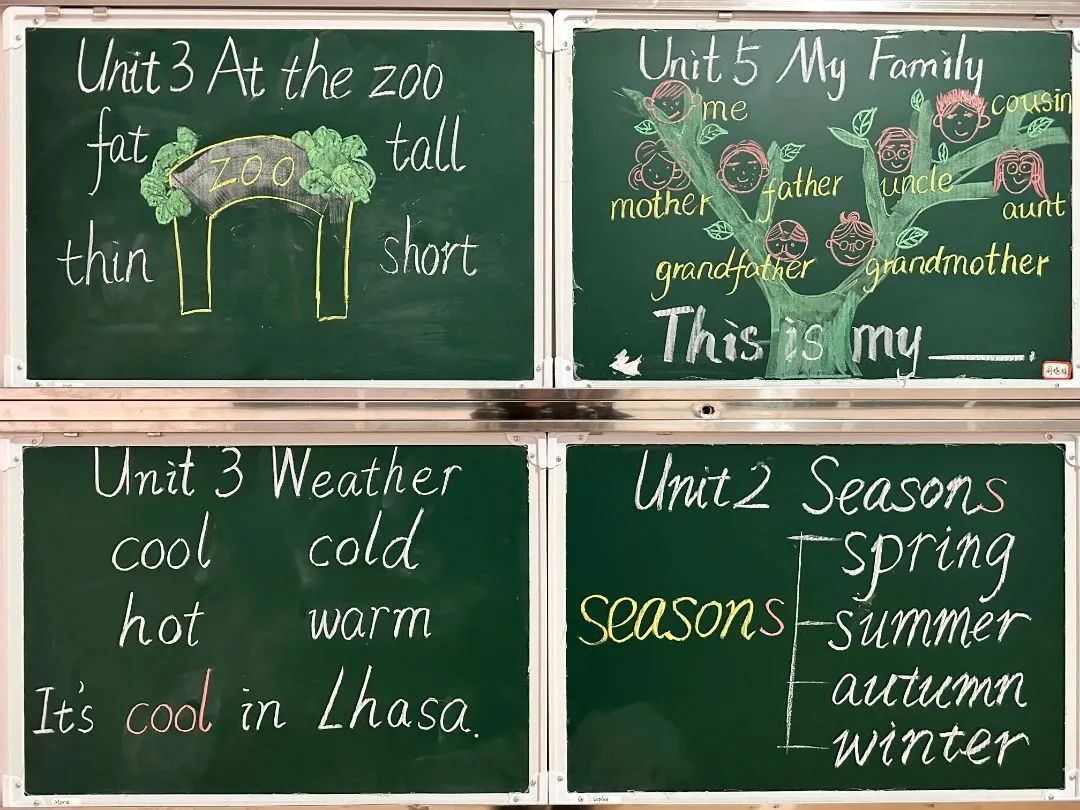 Unit 3 At the zoo
fat
ZOO
tall
thin
short
Unit 5 My Family
me
cousin
mother
father
uncle
aunt
grandfather
grandmother
This is my ____.
Unit 3 Weather
cool cold
hot warm
It's cool in Lhasa.
Unit 2 Seasons
seasons
spring
summer
autumn
winter